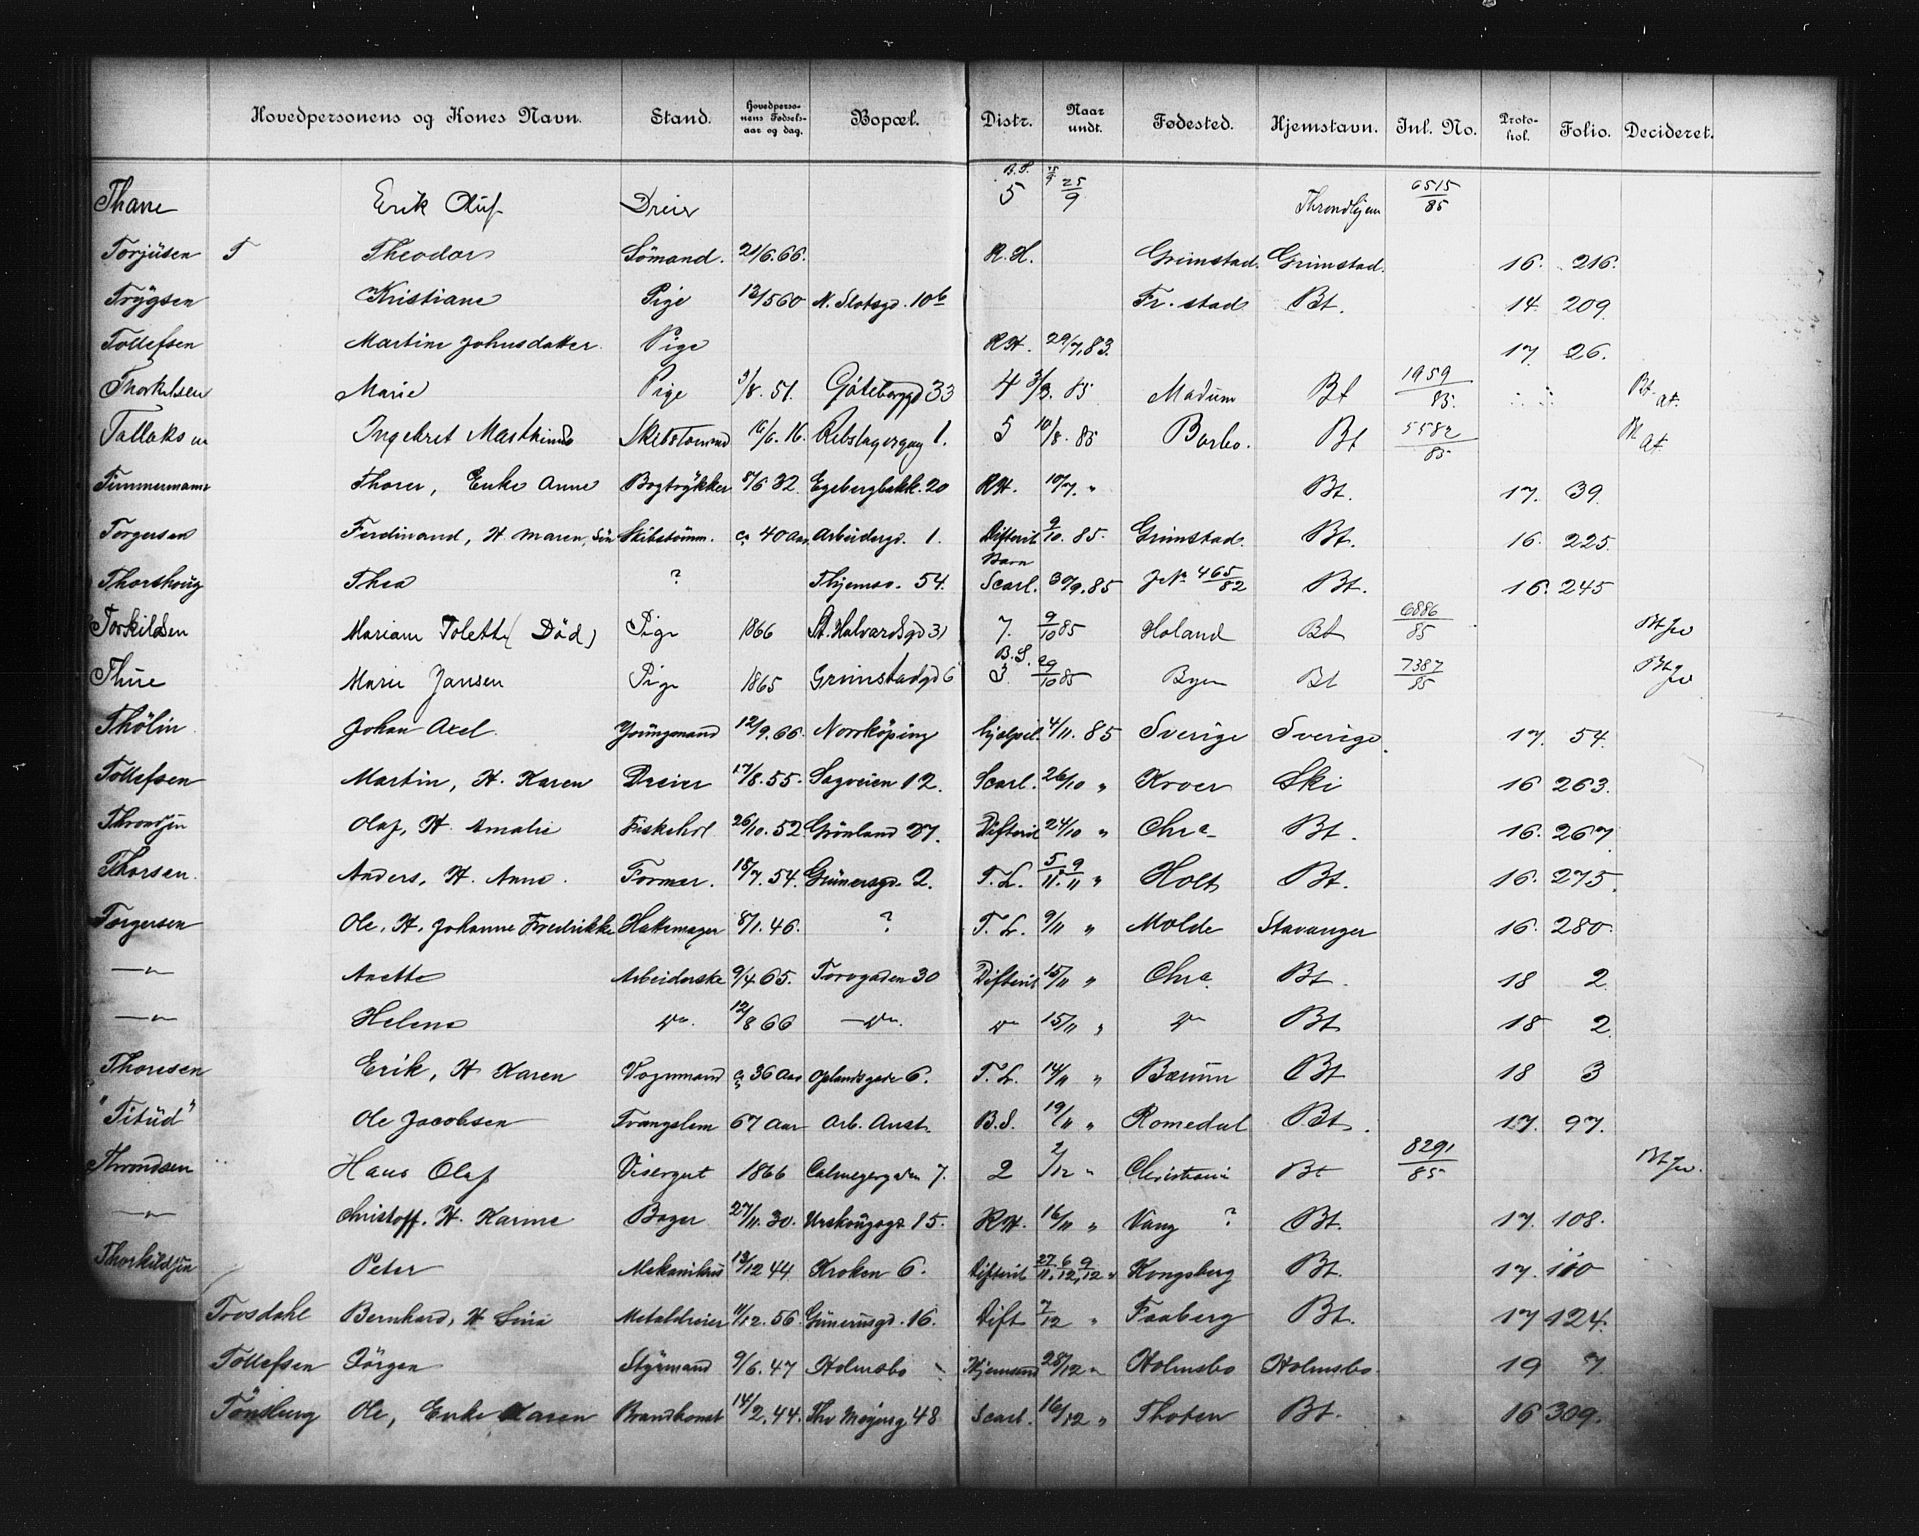 Hovedpersonens og Kones Navn. Stand. Hovedpersonens Fødselsaar og dag. Bopæl. Distr. Naar undt. Fødested. Hjemstavn. Inl. No. Protokol. Folio. Decideret.
Thane Erik Oluf Dreier B.S. 5 25/9 Throndhjem 6515/85
Torjüsen T Theodor Sömand. 21/6.66. R.H. Grimstad. Grimstad. 16. 216.
Trygsen Kristiane Pige 13/5 60 N. Slotsgd. 10b Fr.stad Bt. 14. 209.
Tollefsen Martine Johnsdatter. Pige R.H. 29/7.83. 17. 26.
Thorkilsen Marie Pige 3/8.51. Göteborggd 33 4 3/3.85 Madum Bt 1959/85. Bt. at.
Tallaksen Ingebret Mastkinds Skibstömmd 16/6.16. Rebslagergang 1. 5 10/8.85 Barbo. Bt 5582/85 Bt at.
Timmermann Thorer, Enke Anne Bogtrykker 5/6 32. Egebergbakk. 20 R.H. 10/7. " Bt. 17. 39.
Torgersen Ferdinand, H. Maren, Sön Skibstömm. ca 40 Aar Arbeidergd. 1. Difterit 9/10.85. Grimstad. Bt. 16. 225.
Thorshoug Thea ? Thjemsv. 54. Barn Scarl. 30/9.85 JNo 465/82 Bt. 16. 245
Torkildsen Mariane Tolette (Död) Pige 1866 St. Halvardsgd 31 7. 9/10 85 Höland Bt 6886/85 Bt Jo
Thüe Marie Jansen Pige 1865 Grimstadgd 6 B.S. 3 29/10 85 Byen Bt 7387/85 Bt Jo
Thölin Johan Axel. Yoüngmand 12/9.66. Norrköping hjælpel. 4/11.85 Sverige Sverige. 17. 54.
Tollefsen Martin, H. Karen Dreier 17/8.55. Sagveien 12. Scarl. 26/10 " Kroer Ski 16 263.
Throndsen Olaf, H. Amalie Fiskehdl 26/10.52. Grönland 27. Difterit 24/10 " Chra Bt. 16. 267.
Thorsen. Anders, H. Anne. Former. 18/7.54. Grünersgd. 2. T.L. 5/11. 9/11 " Holt Bt. 16. 275.
Torgersen Ole, H. Johanne Fredrikke Hattemager 8/1.46. ? T.L. 9/11 " Molde Stavanger 16. 280.
—"— Anette Arbeiderske 9/4 65. Torvgaden 30 Difterit 15/11 " Chra. Bt. 18 2
—"— Helene do. 12/8 66 —do. do 15/11 " do Bt 18 2
Thoresen Erik, H Karen Vognmand ca 36 Aar Oplandsgade 6. T.L. 14/11 " Bærum Bt 18 3
"Titüd" Ole Jacobsen Tvangslem 67 Aar Arb. Anst. B.S. 19/11 " Romedal Bt. 17. 97.
Throndsen Hans Olaf Visergut 1866 Calmeyergaden 7. 2 2/12 " Christiania Bt 8291/85 Bt Jo.
—"— Christoff. H. Karine Bager 27/11.30. Urskougsgd. 15. R.H. 16/11 " Vang ? Bt. 17. 108.
Thorkildsen Peter Mekanikus 13/12 44 Kroken 6. Difterit 27/11. 6/12, 9/12 " Kongsberg Bt. 17. 110
Trosdahl Bernhard, H Lina Metaldreier 11/12.56. Günerusgd. 16. Dift 7/12 " Faaberg Bt. 17 124.
Tollefsen Jörgen Styrmand 9/6.47 Holmsbo Hjemsend 28/12 " Holmsbo Holmsbo. 19 7.
Tönsberg Ole, Enke Karen Brandkonst 14/2.44. Thv Meyersg 48 Scarl. 16/12 " Thoten Bt. 16 309.